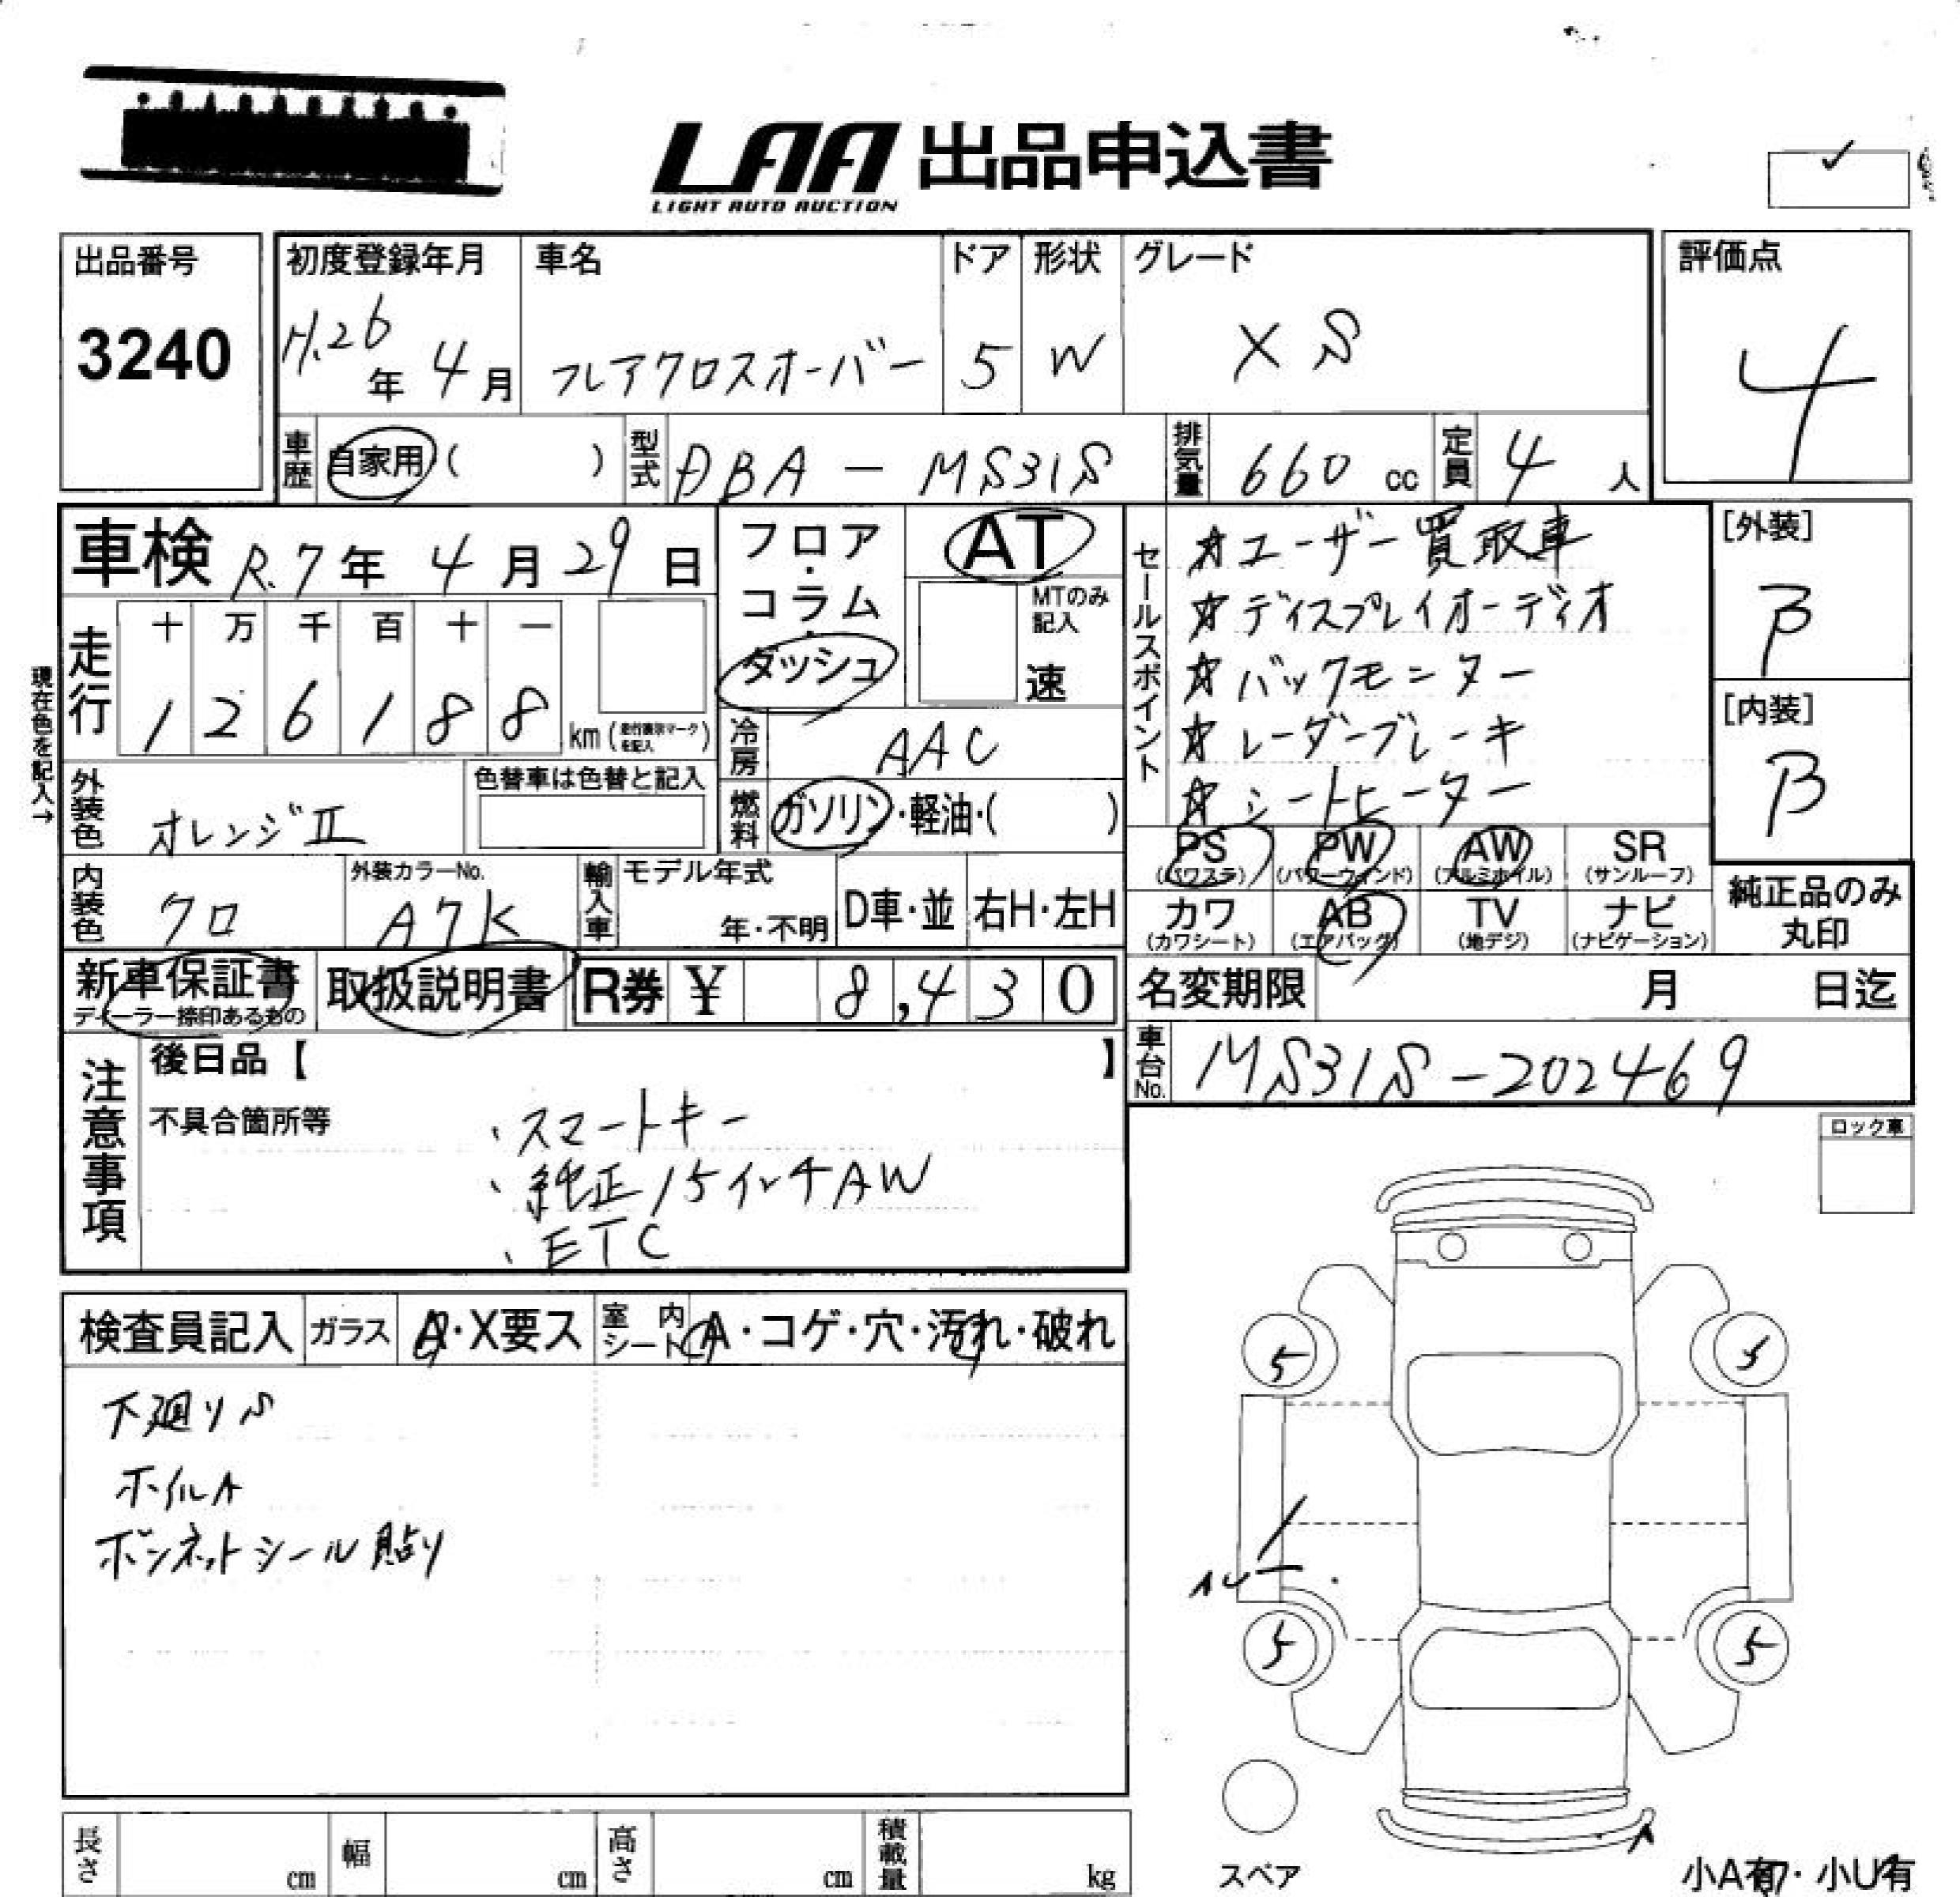 LAA 出品申込書
LIGHT AUTO AUCTION
出品番号
3240
初度登録年月
H.26年 4月
車名
フレアクロスオーバー
ドア
5
形状
W
グレード
XS
評価点
4
車歴 自家用 ( )
型式 DBA - MS31S
排気量 660 cc
定員 4 人
車検 R.7年 4月 29日
フロア・コラム・ダッシュ
AT
MTのみ記入
速
セールスポイント
☆ユーザー買取車
☆ディスプレイオーディオ
☆バックモニター
☆レーダーブレーキ
☆シートヒーター
[外装]
B
[内装]
B
現在色を記入→
走行
十 万 千 百 十 一
1 2 6 1 8 8
km (走行表示マークを記入)
冷房 AAC
燃料 ガソリン・軽油・( )
外装色 オレンジII
色替車は色替と記入
内装色 クロ
外装カラーNo.
A7K
輸入車
モデル年式
年・不明
D車・並
右H・左H
PS (パワステ) PW (パワーウィンド) AW (アルミホイル) SR (サンルーフ)
カワ (カワシート) AB (エアバッグ) TV (地デジ) ナビ (ナビゲーション)
純正品のみ丸印
新車保証書
ディーラー捺印あるもの
取扱説明書
R券 ¥ 8,430
名変期限 月 日迄
車台No. MS31S-202469
注意事項
後日品【 】
不具合箇所等
・スマートキー
・純正15インチAW
・ETC
ロック車
検査員記入
ガラス A・X要ス
室内シート A・コゲ・穴・汚れ・破れ
下廻りS
ホイルA
ボンネットシール貼り
5 5
5 5
A
スペア
小A有・小U有
長さ cm
幅 cm
高さ cm
積載量 kg